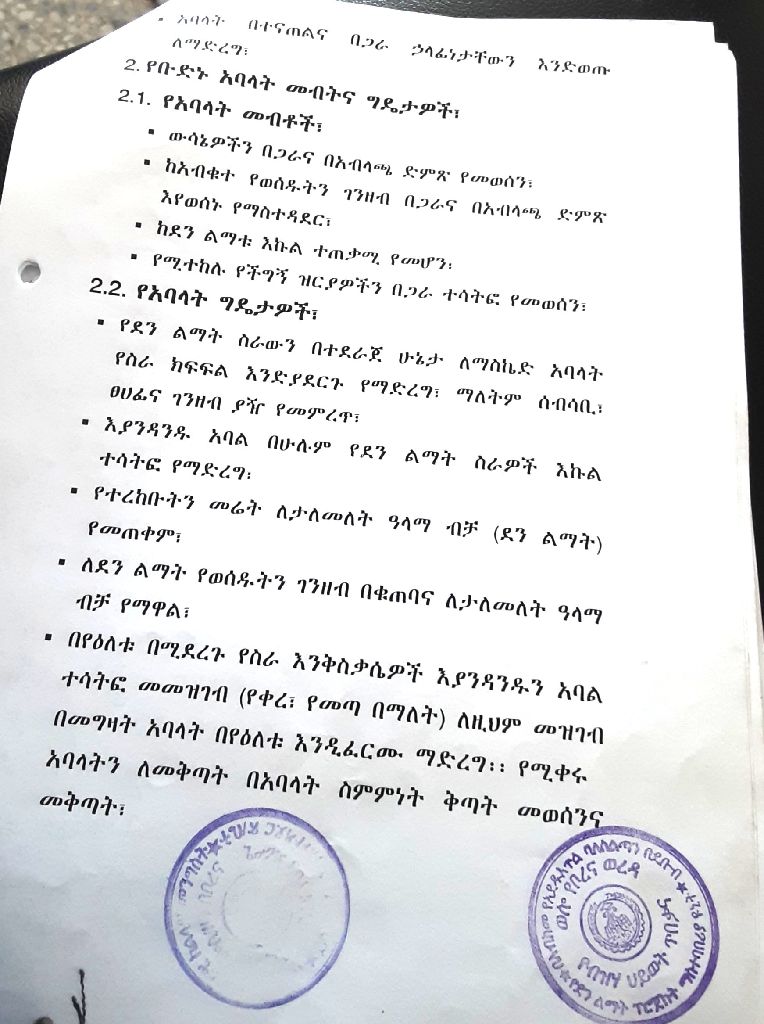 ▪ አባላት በተናጠልና በጋራ ኃላፊነታቸውን እንድወጡ
ለማድረግ፣
2. የቡድኑ አባላት መብትና ግዴታዎች፣
2.1. የአባላት መብቶች፣
▪ ውሳኔዎችን በጋራና በአብላጫ ድምጽ የመወሰን፣
▪ ከአብቁተ የወሰዱትን ገንዘብ በጋራና በአብላጫ ድምጽ
እየወሰኑ የማስተዳደር፣
▪ ከደን ልማቱ እኩል ተጠቃሚ የመሆን፣
▪ የሚተከሉ የችግኝ ዝርያዎችን በጋራ ተሳትፎ የመወሰን፣
2.2. የአባላት ግዴታዎች፣
▪ የደን ልማት ስራውን በተደራጀ ሁኔታ ለማስኬድ አባላት
የስራ ክፍፍል እንድያደርጉ የማድረግ፣ ማለትም ሰብሳቢ፣
ፀሀፊና ገንዘብ ያዥ የመምረጥ፣
▪ እያንዳንዱ አባል በሁሉም የደን ልማት ስራዎች እኩል
ተሳትፎ የማድረግ፣
▪ የተረከቡትን መሬት ለታለመለት ዓላማ ብቻ (ደን ልማት)
የመጠቀም፣
▪ ለደን ልማት የወሰዱትን ገንዘብ በቁጠባና ለታለመለት ዓላማ
ብቻ የማዋል፣
▪ በየዕለቱ በሚደረጉ የስራ እንቅስቃሴዎች እያንዳንዱን አባል
ተሳትፎ መመዝገብ (የቀረ፣ የመጣ በማለት) ለዚህም መዝገብ
በመግዛት አባላት በየዕለቱ እንዲፈርሙ ማድረግ፡፡ የሚቀሩ
አባላትን ለመቅጣት በአባላት ስምምነት ቅጣት መወሰንና
መቅጣት፣